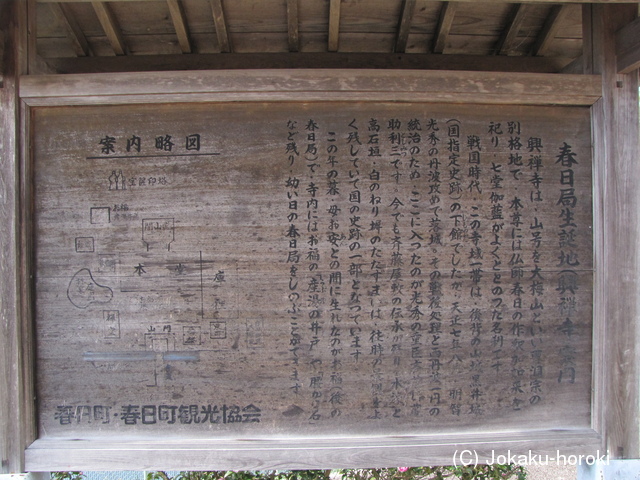 春日局生誕地(興禅寺)案内
興禅寺は、山号を大梅山といい曹洞宗の
別格地で、本尊には仏師春日の作釈迦如来を
祀り、七堂伽藍がよくととのった名刹です。
戦国時代、この寺域一帯は、後背の山城黒井城
(国指定史跡)の下館でしたが、天正七年八月、明智
光秀の丹波攻めで落城、その戦程処理と西丹波一円の
統治のため、ここに入ったのが光秀の重臣斉藤内蔵
助利三です。今でも斉藤屋敷の伝承が残り、水濠と
高石垣、白のねり塀のたたずまいは、往時の
く残していて国の史跡の一部となっています。
この年の暮、母お安との間に生れたのがお福(後の
春日局)で、寺内にはお福の産湯の井戸や腰かけ石
など残り、幼い日の春日局をしのぶことができます。
案内略図
宝篋印塔
開山堂
本堂
庫
山門
春日町・春日町観光協会
(C) Jokaku-horoki